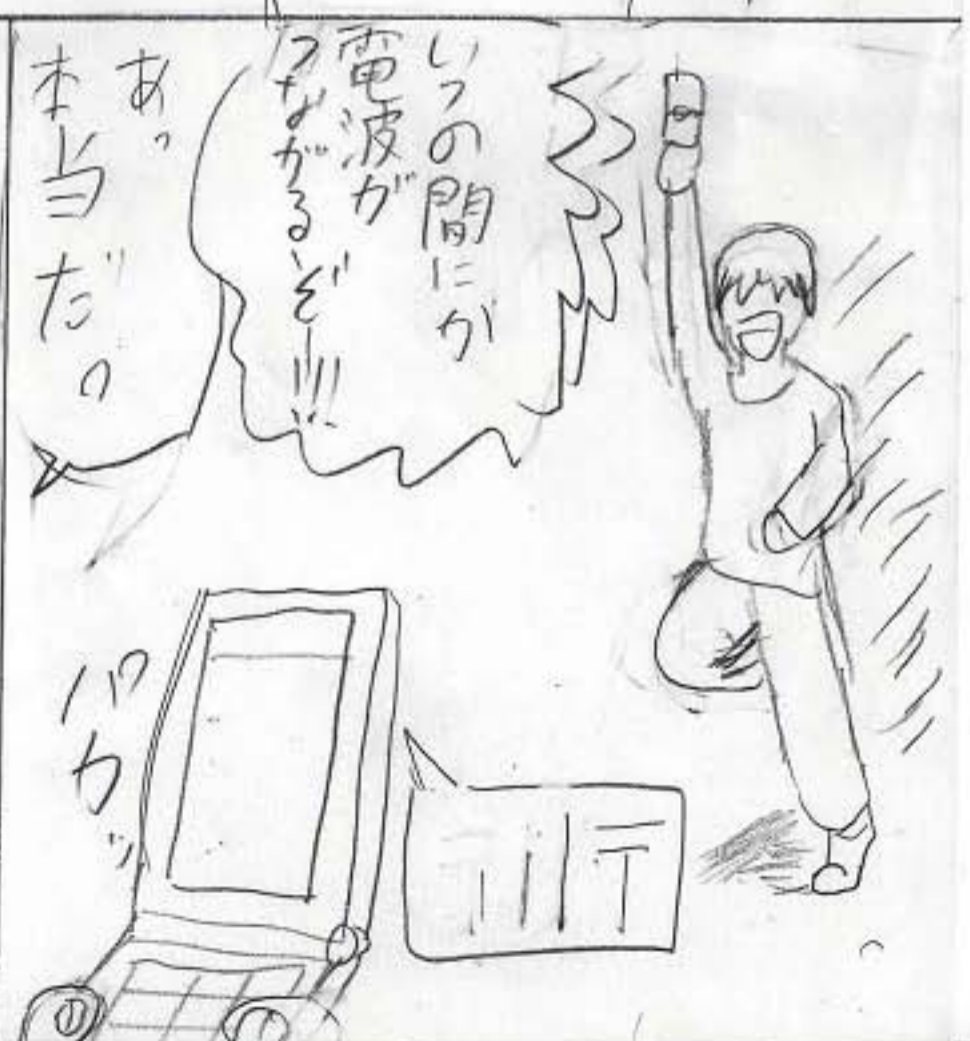 いつの間にか
電波が
つながるぞー!!!
あっ
本当だ。
パカッ